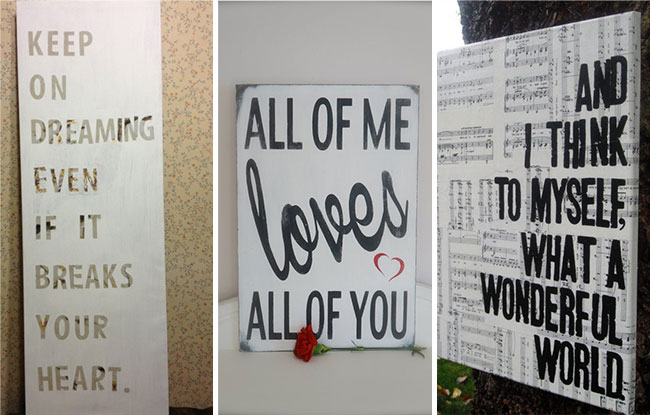 KEEP
ON
DREAMING
EVEN
IF IT
BREAKS
YOUR
HEART.
ALL OF ME
loves
ALL OF YOU
AND
I THINK
TO MYSELF,
WHAT A
WONDERFUL
WORLD.